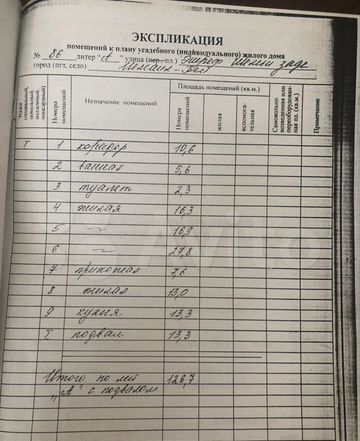 ЭКСПЛИКАЦИЯ
помещений к плану усадебного (индивидуального) жилого дома
№ 86 литер "А" улица (пер. пл)
город (пгт, село)
Этажи
Номера помещений
Назначение помещений
Площадь помещений (кв.м.)
Номера помещений
жилая
вспомога-тельная
Самовольно возведенная или переоборудован-ная пл. (кв.м.)
Примечание
I 1 коридор 10,6
2 ванная 5,6
3 туалет 2,3
4 жилая 16,3
5 —"— 16,9
6 —"— 27,8
7 прихожая 7,6
8 жилая 13,0
9 кухня 13,3
I подвал 13,3
Итого по лит 126,7
"А" с подвалом